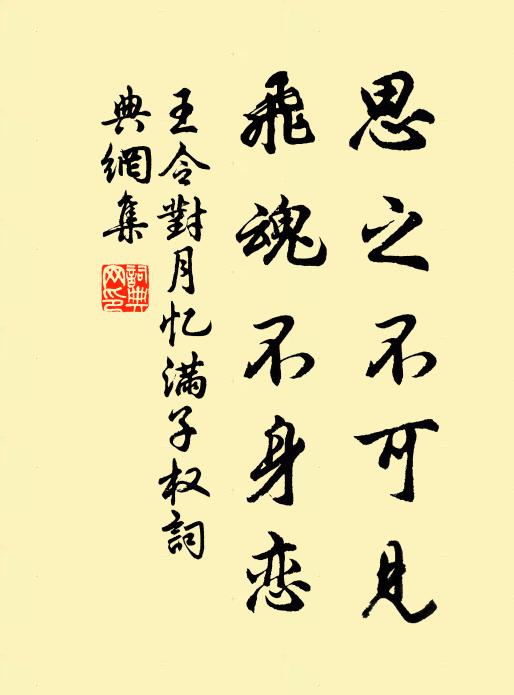 思之不可見
飛魂不身恋
王令對月忆滿子权詞
典網集
詞典
网印